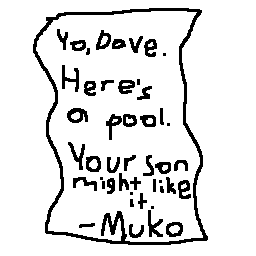 Yo, Dave.
Here's
a pool.
Your son
might like
it.
-Muko